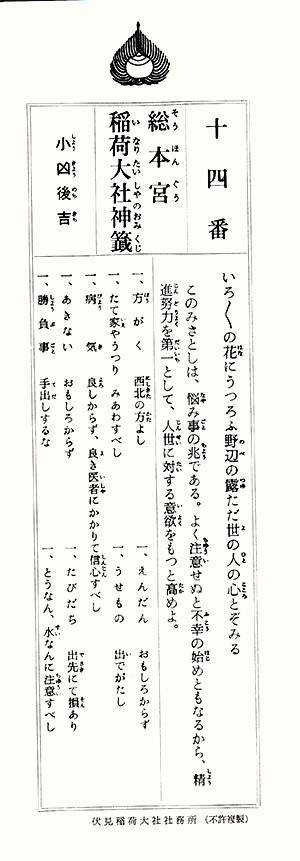 十四番
総本宮
稲荷大社神籤
小凶後吉
いろ〱の花にうつろふ野辺の露ただ世の人の心とぞみる
このみさとしは、悩み事の兆である。よく注意せぬと不幸の始めともなるから、精
進努力を第一として、人世に対する意欲をもつと高めよ。
一、方がく　西北の方よし
一、えんだん　おもしろからず
一、たて家やうつり　みあわすべし
一、うせもの　出でがたし
一、病気　良しからず、良き医者にかかりて信心すべし
一、あきない　おもしろからず
一、たびだち　出先にて損あり
一、勝負事　手出しするな
一、とうなん、水なんに注意すべし
伏見稲荷大社社務所（不許複製）